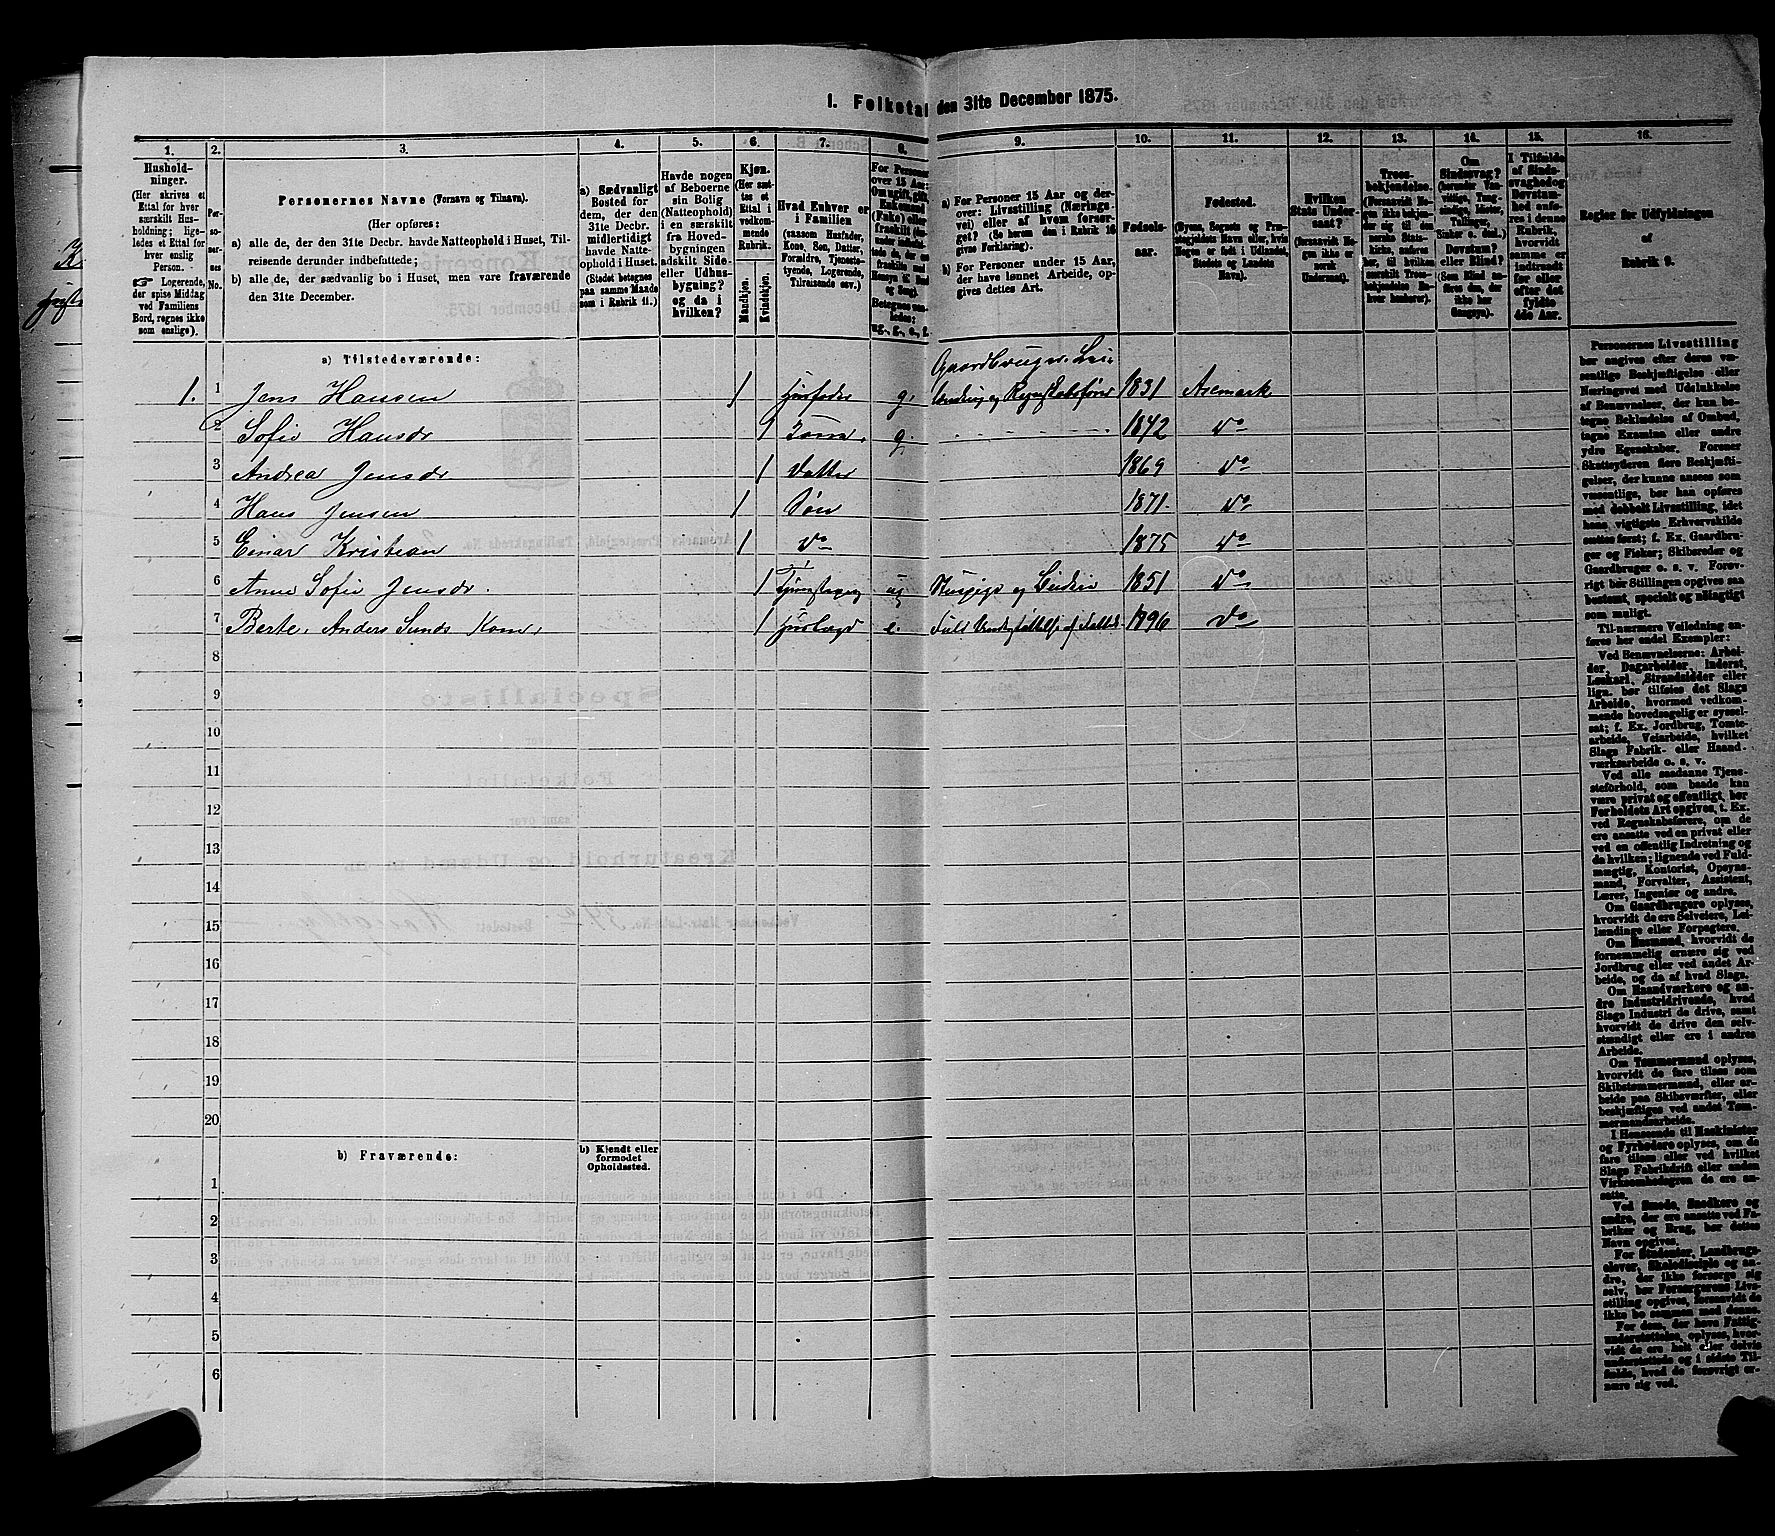 1. Folketal den 31te December 1875.
1. 2. 3. 4. 5. 6. 7. 8. 9. 10. 11. 12. 13. 14. 15. 16.
Hushold-
ninger.
(Her skrives et
Ettal for hver
særskilt Hus-
holdning; lige-
ledes et Ettal for
hver enslig
Person.
☞ Logerende,
der spise Middag
ved Familiens
Bord, regnes ikke
som enslige).
Per-
so-
ner-
nes
No.
Personernes Navne (Fornavn og Tilnavn).
(Her opføres:
a) alle de, der den 31te Decbr. havde Natteophold i Huset, Til-
reisende derunder indbefattede;
b) alle de, der sædvanlig bo i Huset, men vare fraværende
den 31te December.
a) Sædvanligt
Bosted for
dem, der den
31te Decbr.
midlertidigt
havde Natte-
ophold i Huset.
(Stedet betegnes
paa samme Maade
som i Rubrik 11.)
Havde nogen
af Beboerne
sin Bolig
(Natteophold)
i en særskilt
fra Hoved-
bygningen
adskilt Side-
eller Udhus-
bygning?
og da i
hvilken?
Kjøn.
(Her sæt-
tes et
Ettal i
vedkom-
mende
Rubrik.
Mandkjøn.
Kvindekjøn.
Hvad Enhver er
i Familien
(saasom Husfader,
Kone, Søn, Datter,
Forældre, Tjeneste-
tyende, Logerende,
Tilreisende osv.)
For Personer
over 15 Aar:
Om ugift, gift,
Enkemand
(Enke) eller
fraskilt
Betegnes saa-
ledes:
ug., g., e., f.
a) For Personer 15 Aar og der-
over: Livsstilling (Nærings-
vei) eller af hvem forsør-
get? (Se herom den i Rubrik 16
givne Forklaring).
b) For Personer under 15 Aar,
der have lønnet Arbeide, op-
gives dettes Art.
Fødsels-
aar.
Fødested.
(Byens, Sognets og Præ-
stegjeldets Navn eller, hvis
Nogen er født i Udlandet,
Stedets og Landets
Navn).
Hvilken
Stats Under-
saat?
(Forsaavidt No-
gen ikke er
norsk
Undersaat).
Troes-
bekjendelse.
(Forsaavidt No-
gen ikke bekjen-
der sig til den
norske Stats-
kirke, anføres
her, til hvilken
særskilt Troes-
bekjendelse En-
hver henhører).
Om
Sindssvag?
(herunder Van-
vittige, Tung-
sindige, Idioter,
Tullinger,
Sinker o. desl.)
Døvstum?
eller Blind?
(Som Blind an-
føres den, der
ikke har
Gangsyn).
I Tilfælde
af Sinds-
svaghed og
Døvstum-
hed anfø-
res i denne
Rubrik,
hvorvidt
samme er
indtraadt
før eller
efter det
fyldte
4de Aar.
Regler for Udfyldningen
af
Rubrik 9.
a) Tilstedeværende:
Gaardbruger. Lei-
1. 1 Jens Hansen 1 Husfader g. lænding og Regnskabsfører 1831 Aremark
2 Sofie Hansdr 1 Kone. g. 1842 Do
3 Andrea Jensdr 1 Datter 1869 Do
4 Hans Jensen 1 Søn 1871. Do
5 Einar Kristian 1 Do 1875 Do
6 Anne Sofie Jensdr. 1 ug 1851 Do
7 Berte, Anders Sunds Kone, 1 e. 1796 Do
8
9
10
11
12
13
14
15
16
17
18
19
20
b) Fraværende:
b) Kjendt eller
formodet
Opholdssted.
1
2
3
4
5
6
Personernes Livsstilling
bør angives efter deres væ-
sentlige Beskjæftigelse eller
Næringsvei med Udelukkelse
af Benævnelser, der kun be-
tegne Beklædelse af Ombud,
tagne Examina eller andre
ydre Egenskaber. Forener
Skatteyderen flere Beskjæfti-
gelser, der kunne ansees som
væsentlige, bør han opføres
med dobbelt Livsstilling, idet
hans vigtigste Erhvervskilde
sættes først; f. Ex. Gaardbru-
ger og Fisker; Skibsreder og
Gaardbruger o. s. v. Forøv-
rigt bør Stillingen opgives saa
bestemt, specielt og nøiagtigt
som muligt.
Til nærmere Veiledning an-
føres her endel Exempler:
Ved Benævnelserne: Arbei-
der, Dagarbeider, Inderst,
Løskarl, Strandsidder eller
lign. bør tilføies det Slags
Arbeide, hvormed vedkom-
mende hovedsagelig er syssel-
sat; f. Ex. Jordbrug, Tomte-
arbeide, Veiarbeide, hvilket
Slags Fabrik- eller Haand-
værksarbeide o. s. v.
Ved alle saadanne Tjene-
steforhold, som baade kan
være privat og offentligt, bør
Forholdets Art opgives, t. Ex.
ved Regnskabsførere, om de
ere ansatte ved en privat eller
ved en offentlig Indretning og
da hvilken; lignende ved Fuld-
mægtig, Kontorist, Opsyns-
mand, Forvalter, Assistent,
Lærer, Ingeniør og andre.
Om Gaardbrugere oplyses,
hvorvidt de ere Selveiere, Lei-
lændinge eller Forpagtere.
Om Husmænd, hvorvidt de
fornemmelig ernære sig ved
Jordbrug eller ved andet Ar-
beide, og da af hvad Slags.
Om Haandværkere og an-
dre Industridrivende, hvad
Slags Industri de drive, samt
hvorvidt de drive den selv-
stændigt eller ere i andres
Arbeide.
Om Tømmermænd oplyses,
hvorvidt de fare tilsøs som
Skibstømmermænd, eller ar-
beide paa Skibsværfter, eller
beskjæftiges ved andet Tøm-
mermandsarbeide.
I Henseende til Maskinister
og Fyrbødere oplyses, om de
fare tilsøs eller ved hvilket
Slags Fabrikdrift eller anden
Virksomhedsgren de ere an-
satte.
Ved Smede, Snedkere og
andre, der ere ansatte ved Fa-
briker og Brug, bør dettes
Navn opgives.
For Studenter, Landbrugs-
elever, Skoledisciple og an-
dre, der ikke forsørge sig
selv, bør Forsørgerens Livs-
stilling opgives, forsaavidt de
ikke bo sammen med denne.
For dem, der have Fattig-
understøttelse, oplyses, hvor-
vidt de ere helt eller delvis
understøttede og i sidste Til-
fælde, hvad de forøvrigt er-
nære sig ved.